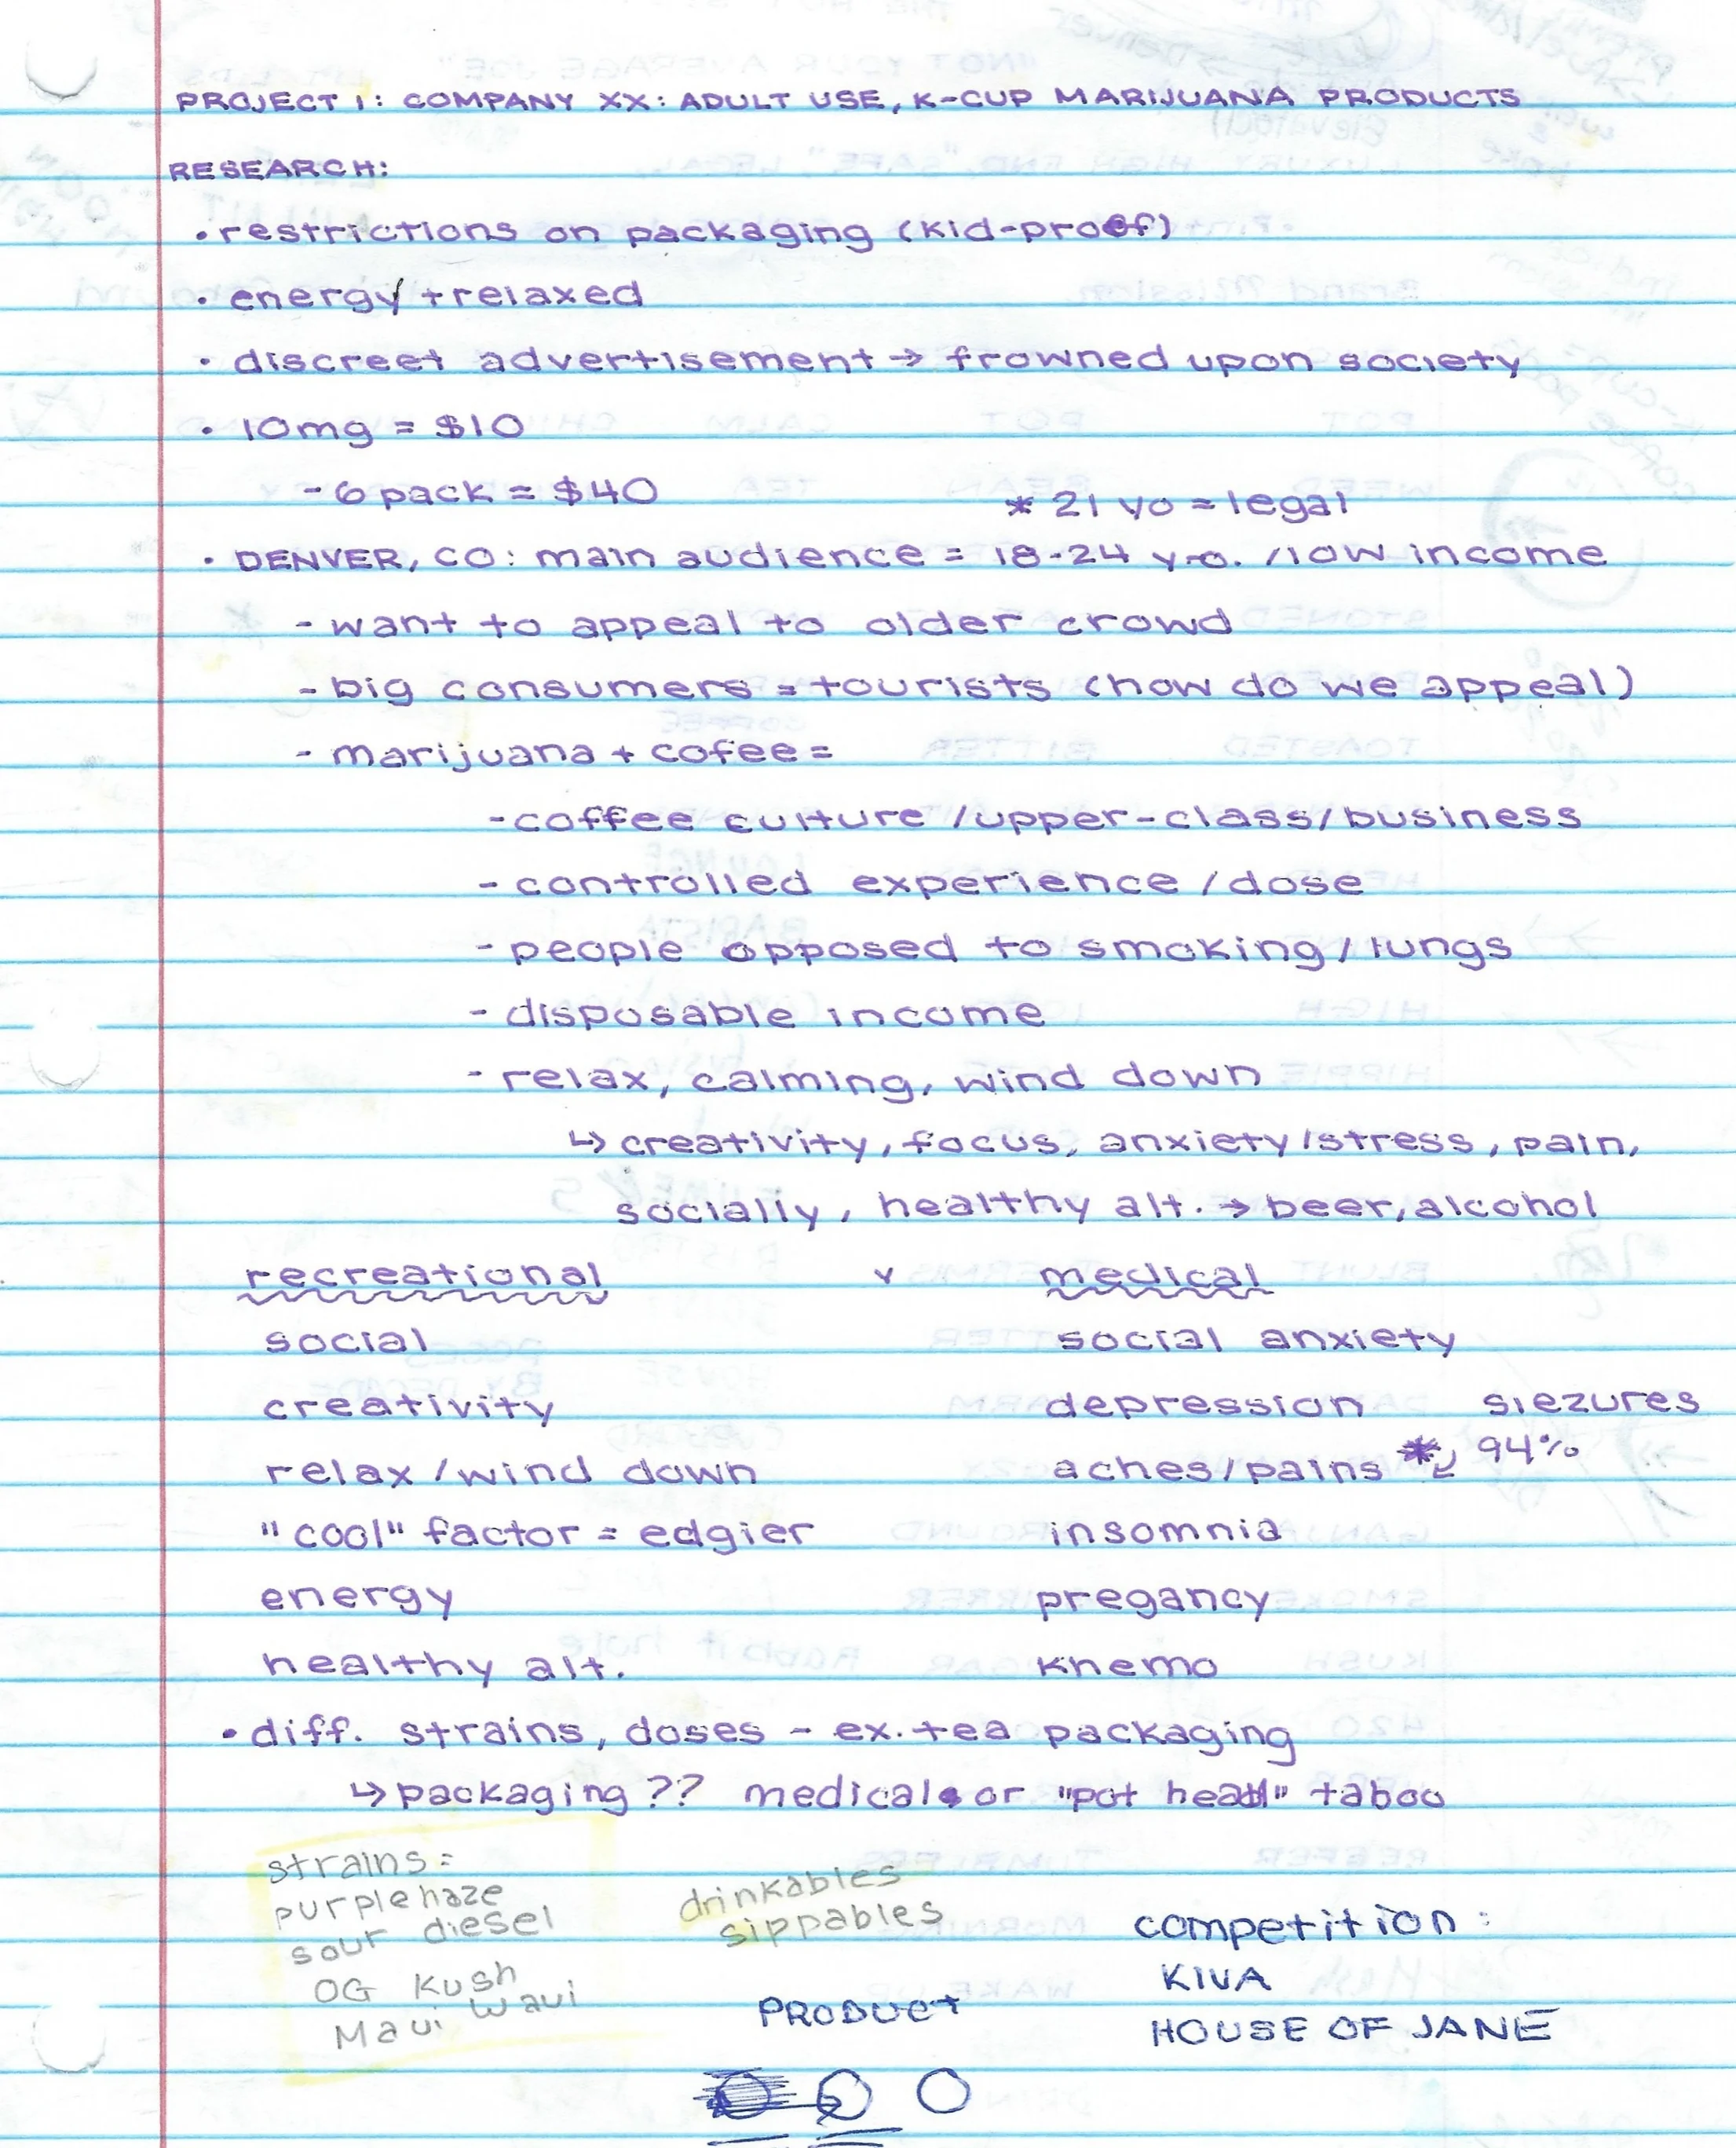 PROJECT 1: COMPANY XX: ADULT USE, K-CUP MARIJUANA PRODUCTS
RESEARCH:
• restrictions on packaging (kid-proof)
• energy + relaxed
• discreet advertisement → frowned upon society
• 10mg = $10
- 6 pack = $40
* 21 yo = legal
• DENVER, CO: main audience = 18-24 y.o. / low income
- want to appeal to older crowd
- big consumers = tourists (how do we appeal)
- marijuana + cofee =
- coffee culture / upper-class / business
- controlled experience / dose
- people opposed to smoking / lungs
- disposable income
- relax, calming, wind down
↳ creativity, focus, anxiety/stress, pain,
socially, healthy alt. → beer, alcohol
recreational v medical
social social anxiety
creativity depression siezures
relax / wind down aches/pains * 94%
"cool" factor = edgier insomnia
energy pregancy
healthy alt. khemo
• diff. strains, doses - ex. tea packaging
↳ packaging ?? medical or "pot head" taboo
strains =
purple haze
sour diesel
OG Kush
Maui Waui
drinkables
sippables
PRODUCt
competition:
KIVA
HOUSE OF JANE